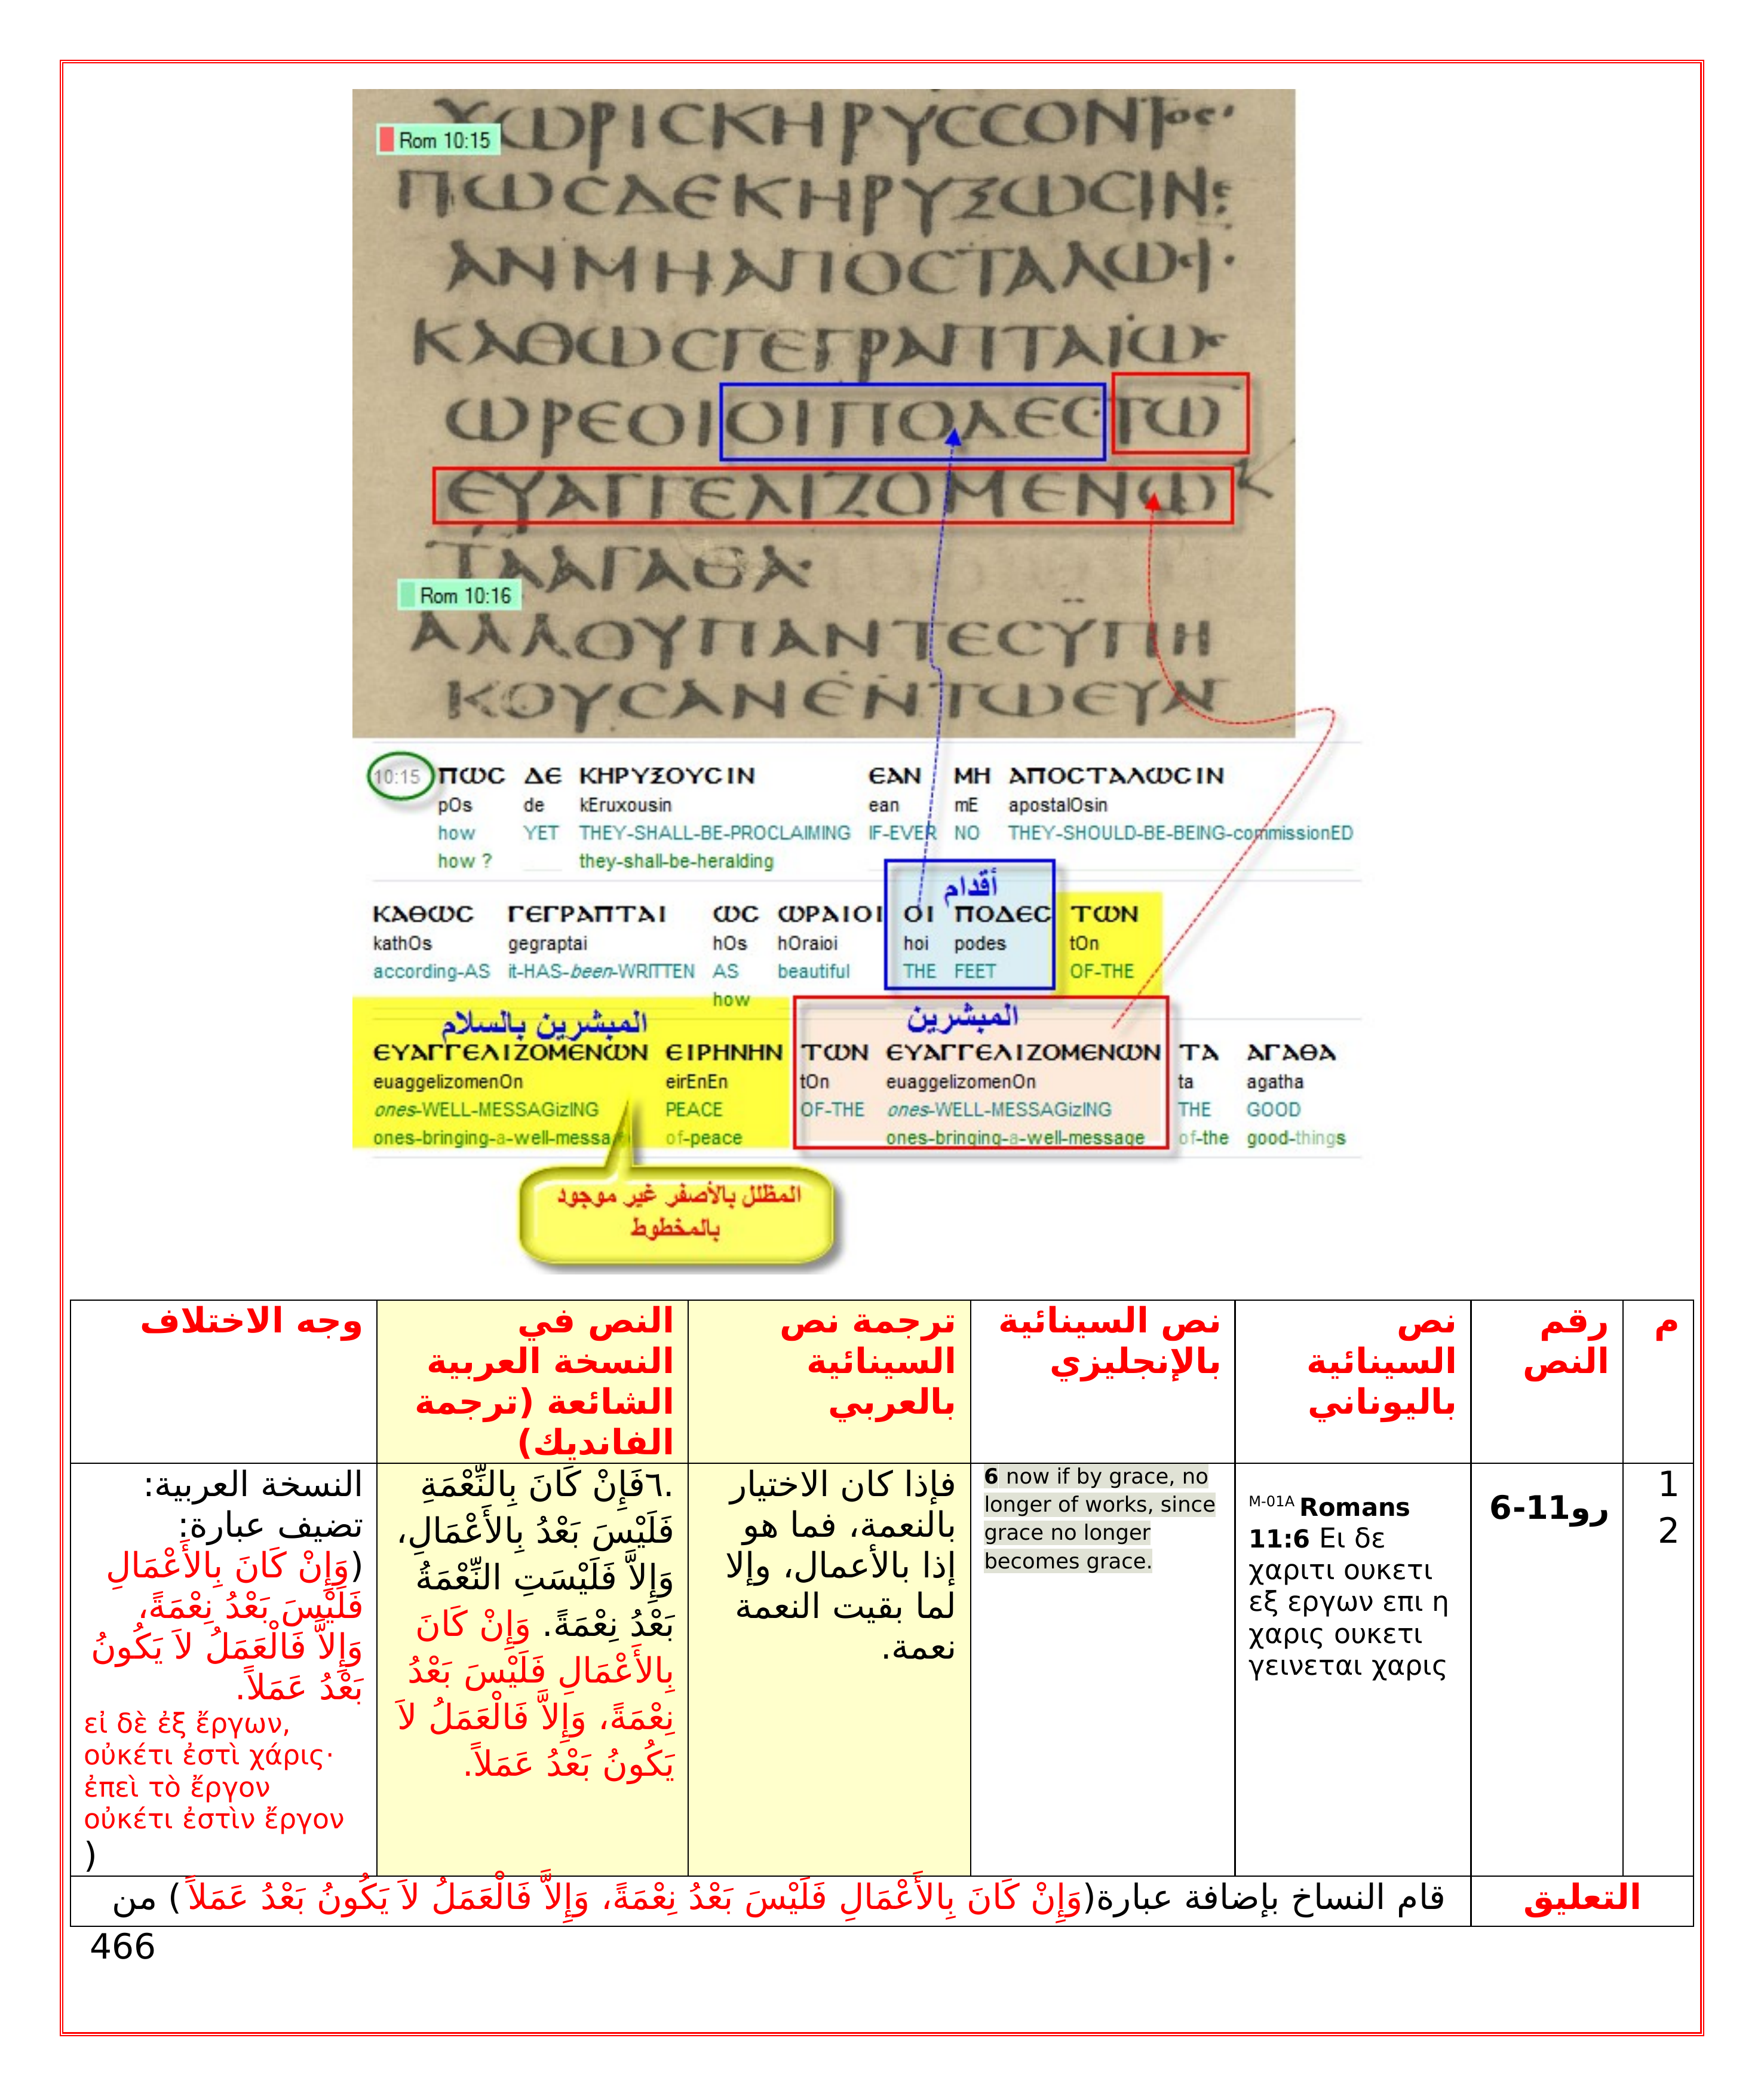 ΧΩΡΙCΚΗΡΥCCΟΝΤος·
Rom 10:15
ΠΩCΔΕΚΗΡΥΞΩCΙΝ
ΑΝΜΗΑΠΟCΤΑΛΩCΙ·
ΚΑΘΩCΓΕΓΡΑΠΤΑΙΩC
ΩΡΕΟΙΟΙΠΟΔΕCΤΩ
ΕΥΑΓΓΕΛΙΖΟΜΕΝΩ
ΤΑΑΓΑΘΑ·
Rom 10:16
ΑΛΛΟΥΠΑΝΤΕCΫΠΗ
ΚΟΥCΑΝΕΝΤΩΕΥΑΓ
10:15 ΠΩC ΔΕ ΚΗΡΥΞΟΥCΙΝ ΕΑΝ ΜΗ ΑΠΟCΤΑΛΩCΙΝ
pOs de kEruxousin ean mE apostalOsin
how YET THEY-SHALL-BE-PROCLAIMING IF-EVER NO THEY-SHOULD-BE-BEING-commissionED
how ? they-shall-be-heralding
أقدام
ΚΑΘΩC ΓΕΓΡΑΠΤΑΙ ΩC ΩΡΑΙΟΙ ΟΙ ΠΟΔΕC ΤΩΝ
kathOs gegraptai hOs hOraioi hoi podes tOn
according-AS it-HAS-been-WRITTEN AS beautiful THE FEET OF-THE
how
المبشرين بالسلام المبشرين
ΕΥΑΓΓΕΛΙΖΟΜΕΝΩΝ ΕΙΡΗΝΗΝ ΤΩΝ ΕΥΑΓΓΕΛΙΖΟΜΕΝΩΝ ΤΑ ΑΓΑΘΑ
euaggelizomenOn eirEnEn tOn euaggelizomenOn ta agatha
ones-WELL-MESSAGizING PEACE OF-THE ones-WELL-MESSAGizING THE GOOD
ones-bringing-a-well-messa of-peace ones-bringing-a-well-message of-the good-things
المظلل بالأصفر غير موجود
بالمخطوط
م
رقم
النص
نص
السينائية
باليوناني
نص السينائية
بالإنجليزي
ترجمة نص
السينائية
بالعربي
النص في
النسخة العربية
الشائعة (ترجمة
الفانديك)
وجه الاختلاف
1
2
رو11-6
M-01A Romans
11:6 Ει δε
χαριτι ουκετι
εξ εργων επι η
χαρις ουκετι
γεινεται χαρις
6 now if by grace, no
longer of works, since
grace no longer
becomes grace.
فإذا كان الاختيار
بالنعمة، فما هو
إذا بالأعمال، وإلا
لما بقيت النعمة
نعمة.
.٦فَإِنْ كَانَ بِالنِّعْمَةِ
فَلَيْسَ بَعْدُ بِالأَعْمَالِ،
وَإِلاَّ فَلَيْسَتِ النِّعْمَةُ
بَعْدُ نِعْمَةً. وَإِنْ كَانَ
بِالأَعْمَالِ فَلَيْسَ بَعْدُ
نِعْمَةً، وَإِلاَّ فَالْعَمَلُ لاَ
يَكُونُ بَعْدُ عَمَلاً.
النسخة العربية:
تضيف عبارة:
(وَإِنْ كَانَ بِالأَعْمَالِ
فَلَيْسَ بَعْدُ نِعْمَةً،
وَإِلاَّ فَالْعَمَلُ لاَ يَكُونُ
بَعْدُ عَمَلاً.
εἰ δὲ ἐξ ἔργων,
οὐκέτι ἐστὶ χάρις·
ἐπεὶ τὸ ἔργον
οὐκέτι ἐστὶν ἔργον
)
التعليق
قام النساخ بإضافة عبارة(وَإِنْ كَانَ بِالأَعْمَالِ فَلَيْسَ بَعْدُ نِعْمَةً، وَإِلاَّ فَالْعَمَلُ لاَ يَكُونُ بَعْدُ عَمَلاً ) من
466